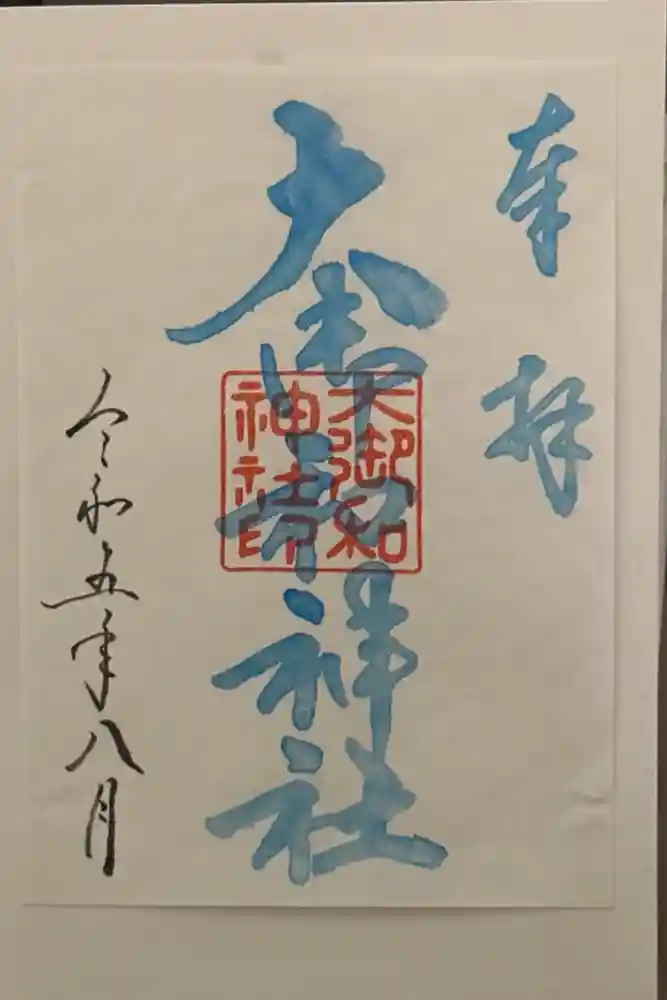 奉拝
大御和神社
大御和
神社印
令和五年八月